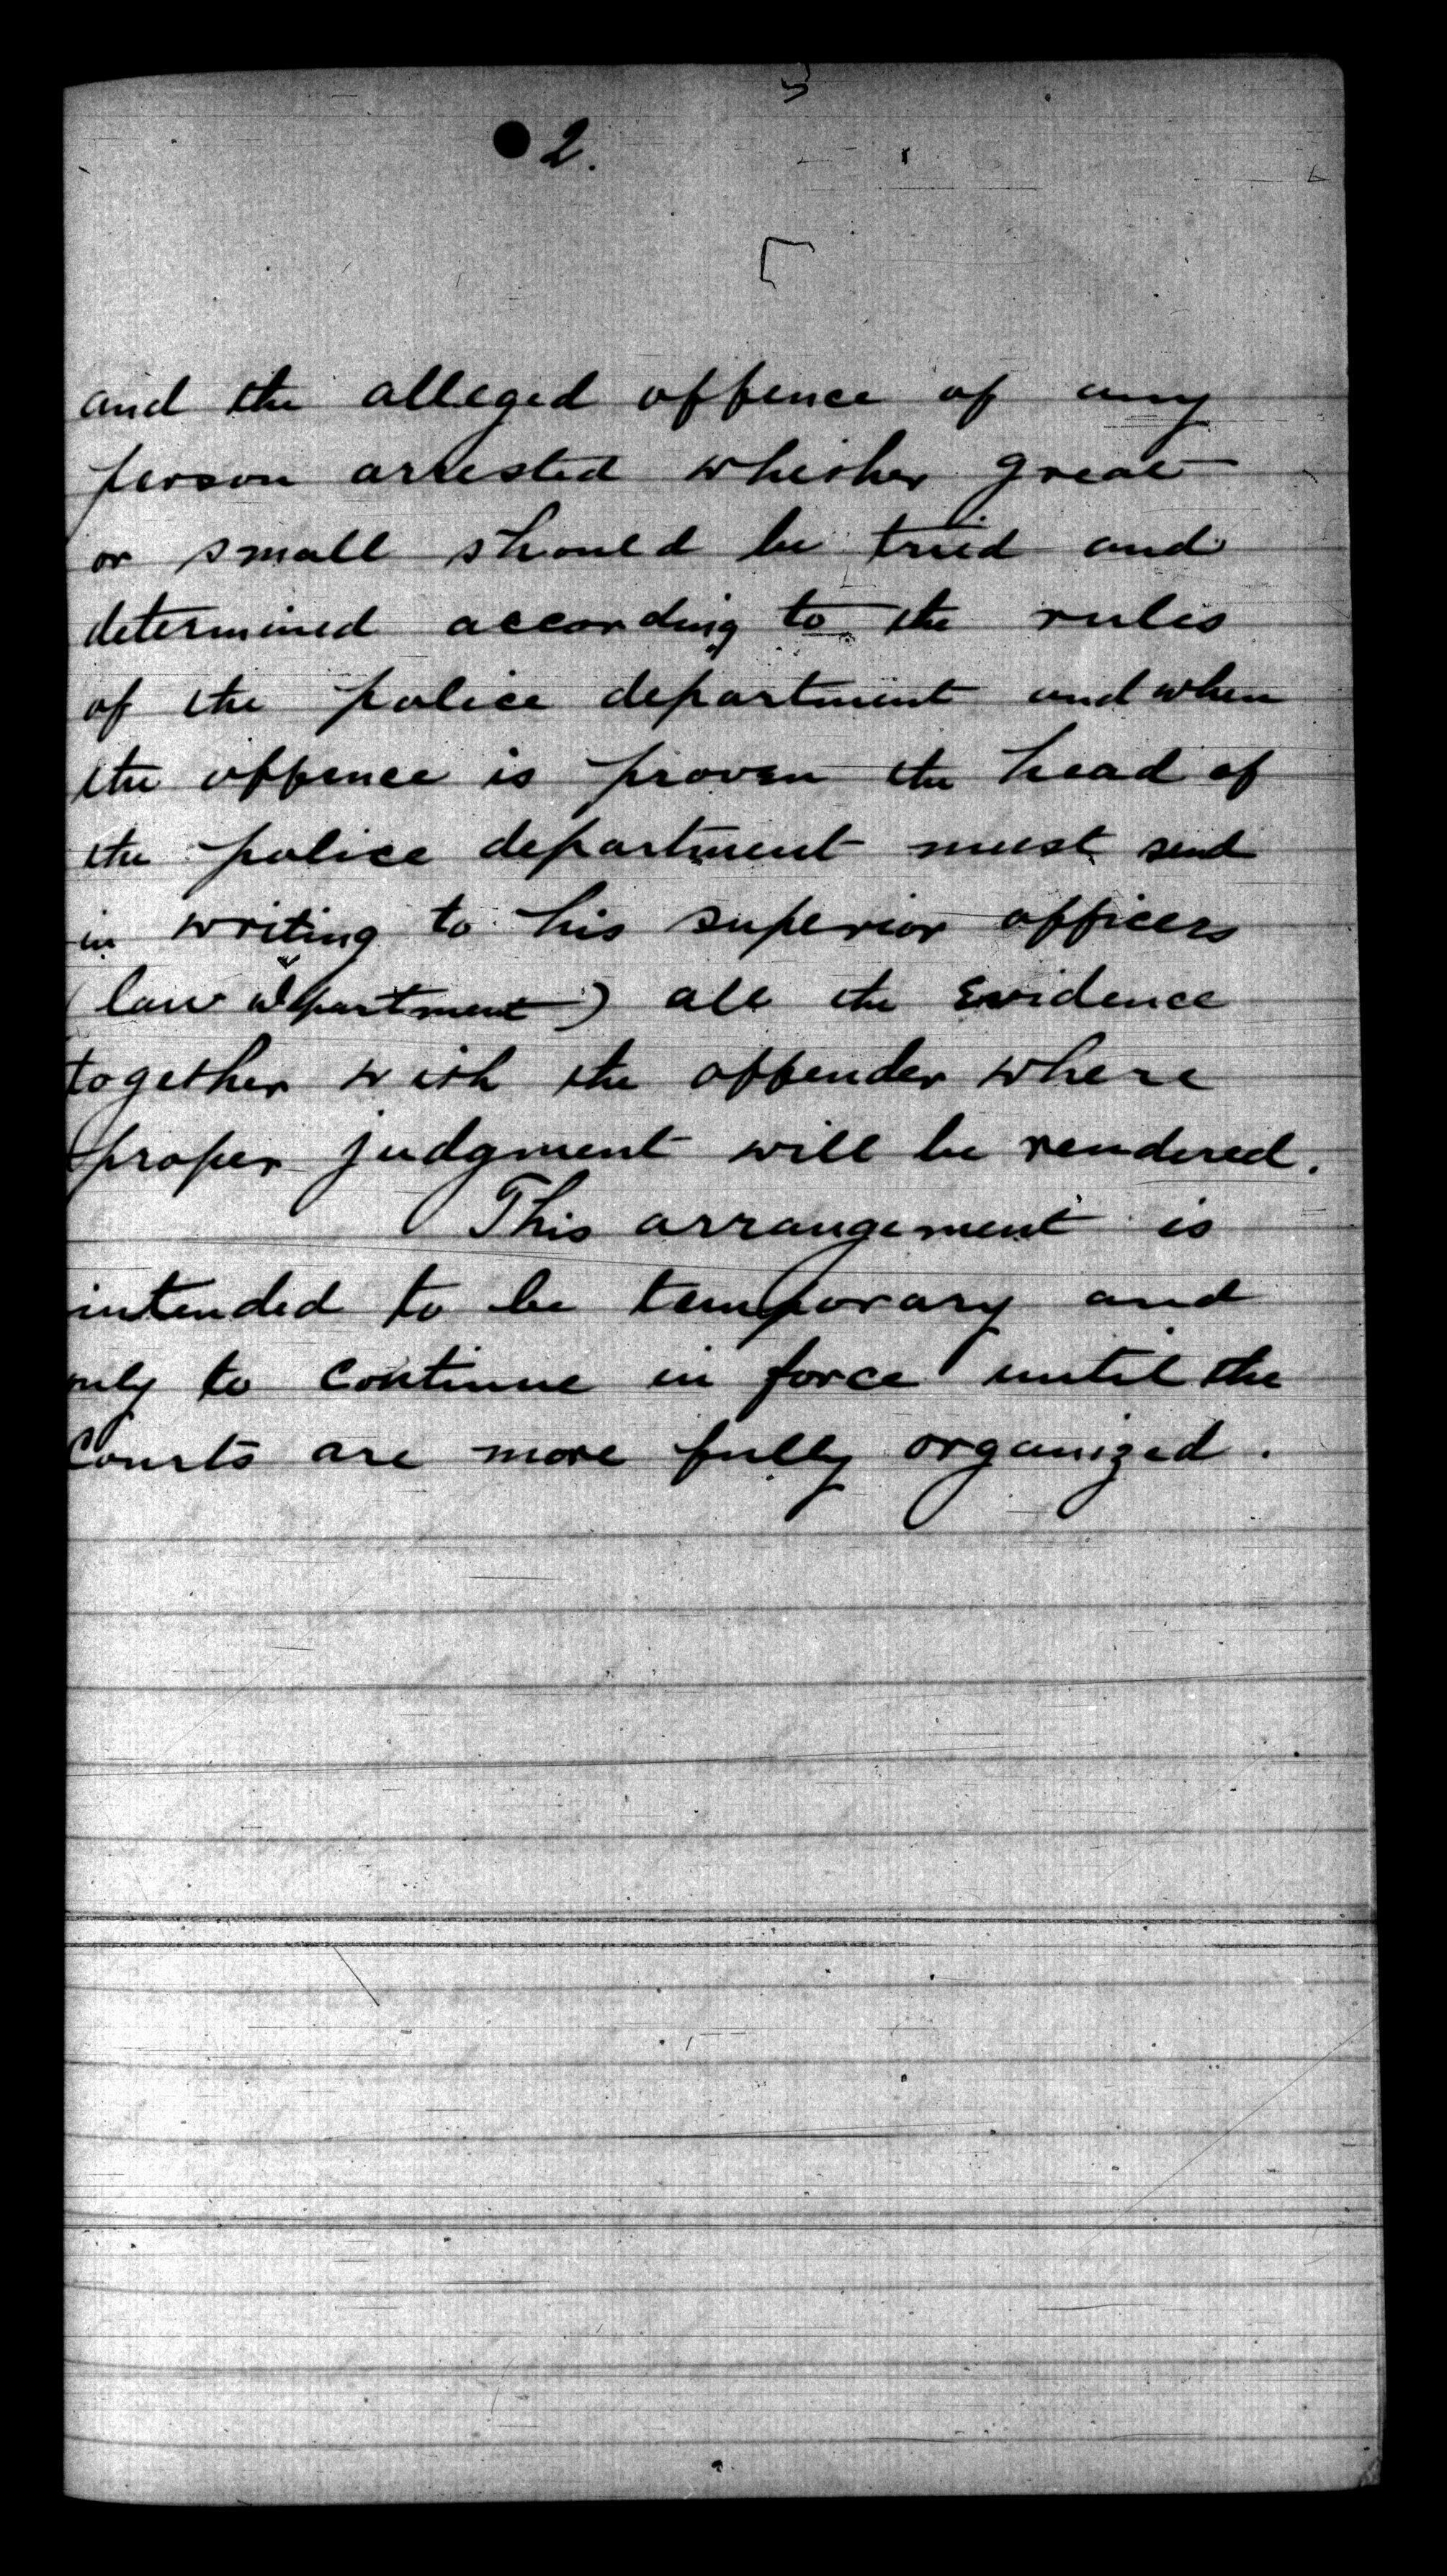 2.
and the alleged offence of any
person arrested whether great
or small should be tried and
determined according to the rules
of the police department and when
the offence is proven the head of
the police department must send
in writing to his superior officers
(law department) all the Evidence
together with the offender where
proper judgment will be rendered.
This arrangement is
intended to be temporary and
only to continue in force until the
Courts are more fully organized.